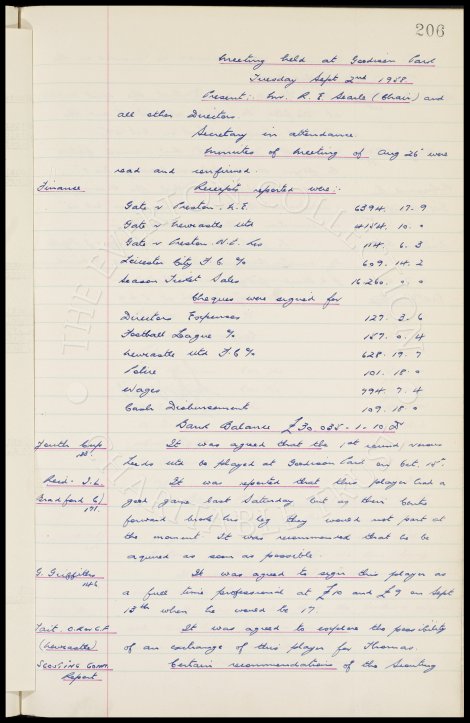 206
Meeting held at Goodison Park
Tuesday Sept 2nd 1958
Present:- Mr. R. E. Searle (Chair) and
all other Directors
Secretary in attendance
Minutes of meeting of Aug 26 were
read and confirmed.
Finance Receipts reported were:-
Gate v Preston. N.E. 6394. 17. 9
Gate v Newcastle Utd 4154. 10. 0
Gate v Preston. N.E. Res 114. 6. 3
Leicester City F.C. % 609. 14. 2
Season Ticket Sales 16.260. 0. 0
Cheques were signed for
Directors Expenses 127. 3. 6
Football League % 157. 0. 4
Newcastle Utd F.C % 628. 19. 7
Police 101. 18. 0
Wages 994. 7. 4
Cash Disbursement 109. 18. 0
Bank Balance £30,035 - 1 - 10.
Youth Cup It was agreed that the 1st round versus
Leeds Utd be played at Goodison Park on Oct. 15.
Reid - It was reported that this player had a
Bradford C/ good game last Saturday but as their Centre
191. forward broke his leg they would not part at
the moment. It was recommended that he be
acquired as soon as possible
G. Griffiths It was agreed to sign this player as
146 a full time professional at £10 and £9 on Sept
13th when he would be 17.
Tait. It was agreed to explore the possibility
(Newcastle) of an exchange of this player for Thomas.
Scouting Comm. Certain recommendations of the Scouting
Report
THE EVERTON COLLECTION
CHARITABLE